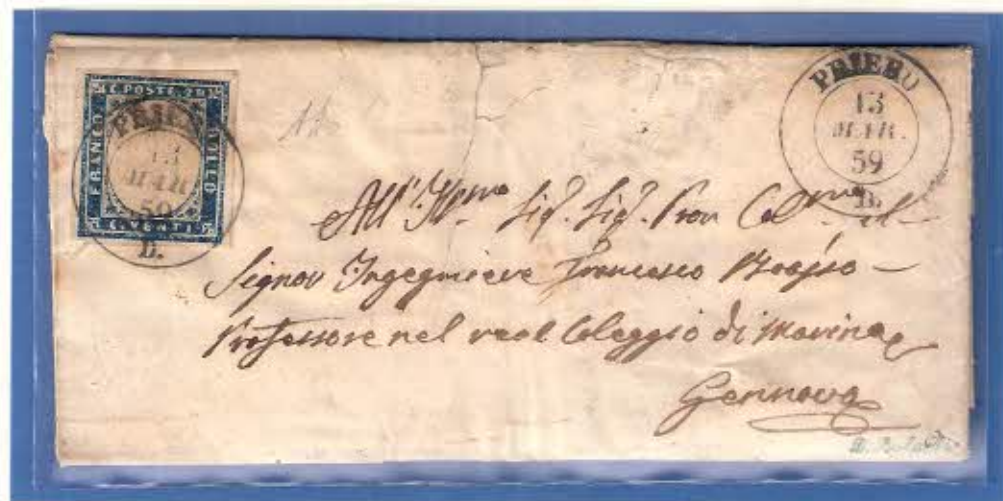 C. POSTE 20
FRANCO
BOLLO
C. VENTI
PRIERO
13
59
D.
PRIERO
13
59
D.
All' Ill.mo Sig. Sig. Pron Col.mo il
Signor Ingegniere Francesco
Professore nel real Coleggio di Marina
Gennova